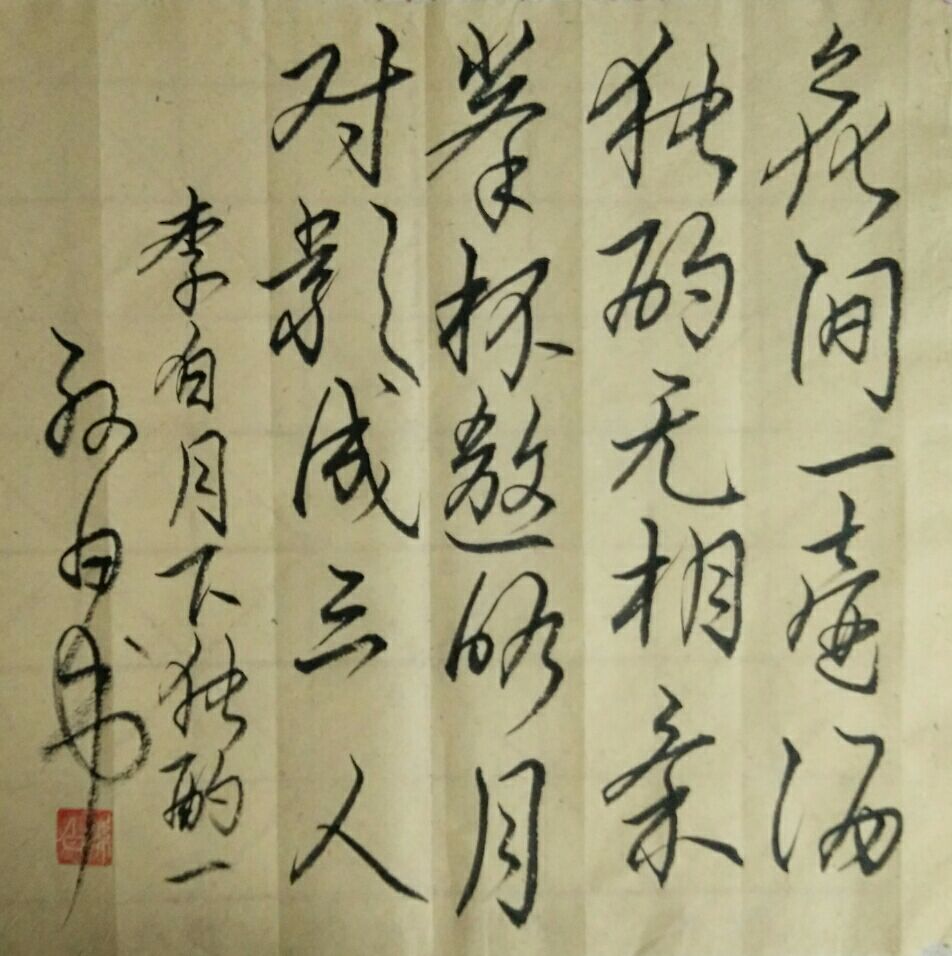 花间一壶酒
独酌无相亲
举杯邀明月
对影成三人
李白月下独酌一
书